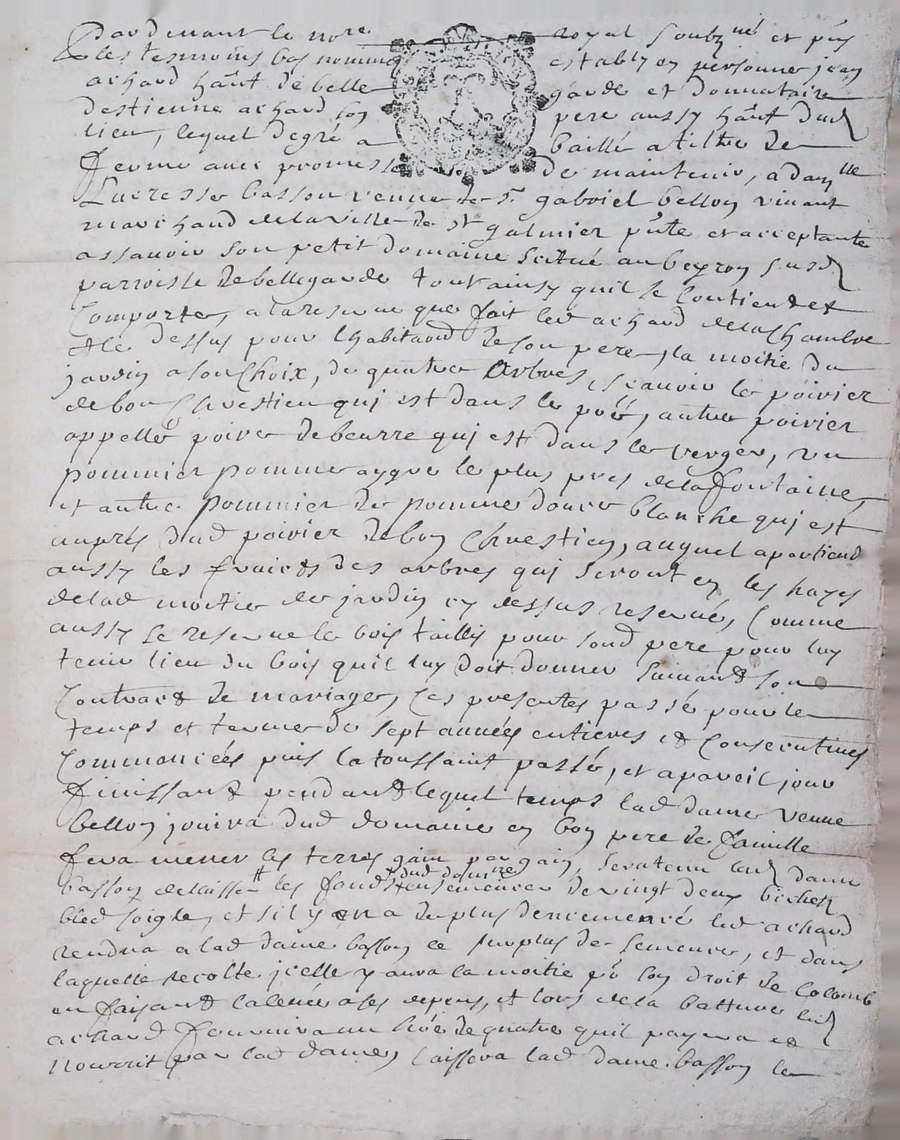 Pardevant le no.re royal soubz.né et pñs
les tesmoins bas nommés estably en personne jean
achard hãnt de belle garde et donnataire
destienne achard son pere aussy hãnt dud
lieu, lequel de gré a baillé a tiltre de
ferme avec promesse de maintenir, a dam.lle
Lucresse basson veuve de s.r gabriel bellon vivant
marchand de la ville de st galmier pñte et acceptante
assavoir son petit domaine scitué au beyron susd
parroisse de bellegarde tout ainsy quil se contient et
Comporte, a la reserve que fait led achard de la Chambre
et le dessus pour lhabitaon de son pere, la moitié du
jardin a son Choix, de quatre Arbres, scavoir le poirier
de bon Chrestien qui est dans le pré, autre poirier
appellé poire de beurre qui est dans le verger, un
pommier pomme aygre le plus pres de la fontaine,
et autre pommier de pomme douce blanche qui est
auprés dud poirier de bon Chrestien, auquel apartiend
aussy les fruicts des arbres qui seront en les hayes
de lad moitié de jardin cy dessus reservé, Comme
aussy se reserve le bois taillis pour sond pere pour luy
tenir lieu du bois quil luy doit donner suivant son
Contract de mariage, Ces presentes passé pour le
temps et terme de sept années entieres et Consecutives
Commancées puis la toussaint passé, et a pareil jour
finissant pendant lequel temps lad dame veuve
bellon jouira dud domaine en bon pere de famille
fera mener les terres gain par gain, sera tenu lad dame
basson de laisser les fonds dud domaine ensemencer de vingt deux bichets
bled soigle, et sil y en a de plus densemencé led achard
rendra a lad dame basson ce surplus de semence, et dans
laquelle recolte jcelle y aura la moitié pr son droit de colomb
en faisant la levée a ses depens, et lors de la batture led
achard fournira un de quatre quil payera et
nourrit par lad dame, laissera lad dame basson le